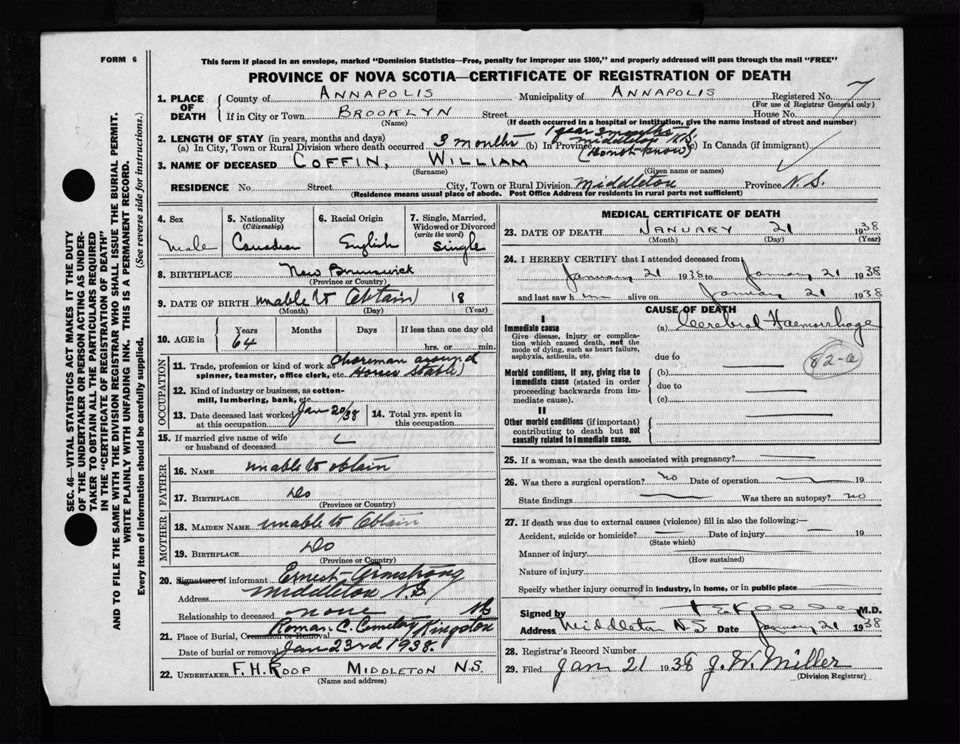 FORM 6
This form if placed in an envelope, marked "Dominion Statistics—Free, penalty for improper use $300," and properly addressed will pass through the mail "FREE"
PROVINCE OF NOVA SCOTIA—CERTIFICATE OF REGISTRATION OF DEATH
1. PLACE OF DEATH
County of ANNAPOLIS Municipality of ANNAPOLIS Registered No. 7
(For use of Registrar General only)
If in City or Town BROOKLYN Street House No.
(Name) (If death occurred in a hospital or institution, give the name instead of street and number)
2. LENGTH OF STAY (in years, months and days)
(a) In City, Town or Rural Division where death occurred 3 months (b) In Province 1 year 3 months Middleton N.S. (Don't know) (c) In Canada (if immigrant)
3. NAME OF DECEASED COFFIN, WILLIAM
(Surname) (Given name or names)
RESIDENCE No. Street City, Town or Rural Division Middleton Province N.S.
(Residence means usual place of abode. Post Office Address for residents in rural parts not sufficient)
4. Sex Male
5. Nationality (Citizenship) Canadian
6. Racial Origin English
7. Single, Married, Widowed or Divorced (write the word) Single
8. BIRTHPLACE New Brunswick
(Province or Country)
9. DATE OF BIRTH unable to Obtain 18
(Month) (Day) (Year)
10. AGE in Years 64 Months Days If less than one day old hrs. or min.
OCCUPATION
11. Trade, profession or kind of work as spinner, teamster, office clerk, etc. Choreman around Horse Stable
12. Kind of industry or business, as cotton-mill, lumbering, bank, etc.
13. Date deceased last worked at this occupation Jan 20/38
14. Total yrs. spent in this occupation
15. If married give name of wife or husband of deceased
FATHER
16. NAME unable to obtain
17. BIRTHPLACE Do
(Province or Country)
MOTHER
18. MAIDEN NAME unable to Obtain
19. BIRTHPLACE Do
(Province or Country)
20. Signature of informant Ernest Armstrong
Address Middleton N.S
Relationship to deceased none
21. Place of Burial, Cremation or Removal Roman C. Cemetary Kingston NS
Date of burial or removal Jan 23rd 1938.
22. UNDERTAKER F.H. ROOP MIDDLETON N.S.
(Name and address)
MEDICAL CERTIFICATE OF DEATH
23. DATE OF DEATH JANUARY 21 1938
(Month) (Day) (Year)
24. I HEREBY CERTIFY that I attended deceased from
January 21 1938 to January 21 1938
and last saw him alive on January 21 1938
CAUSE OF DEATH
I
Immediate cause
Give disease, injury or complication which caused death, not the mode of dying, such as heart failure, asphyxia, asthenia, etc.
(a) Cerebral Haemorrhage
due to
82-a
Morbid conditions, if any, giving rise to immediate cause (stated in order proceeding backwards from immediate cause).
(b)
due to
(c)
II
Other morbid conditions (if important) contributing to death but not causally related to immediate cause.
25. If a woman, was the death associated with pregnancy?
26. Was there a surgical operation? no Date of operation 19
State findings Was there an autopsy? no
27. If death was due to external causes (violence) fill in also the following:—
Accident, suicide or homicide? Date of injury 19
(State which)
Manner of injury
(How sustained)
Nature of injury
Specify whether injury occurred in Industry, in home, or in public place
Signed by M.D.
Address Middleton N.S Date January 21 1938
28. Registrar's Record Number
29. Filed Jan 21 1938 J. W. Miller
(Division Registrar)
SEC. 46—VITAL STATISTICS ACT MAKES IT THE DUTY
OF THE UNDERTAKER OR PERSON ACTING AS UNDER-
TAKER TO OBTAIN ALL THE PARTICULARS REQUIRED
IN THE "CERTIFICATE OF REGISTRATION OF DEATH"
AND TO FILE THE SAME WITH THE DIVISION REGISTRAR WHO SHALL ISSUE THE BURIAL PERMIT.
WRITE PLAINLY WITH UNFADING INK. THIS IS A PERMANENT RECORD.
Every item of information should be carefully supplied. (See reverse side for instructions.)